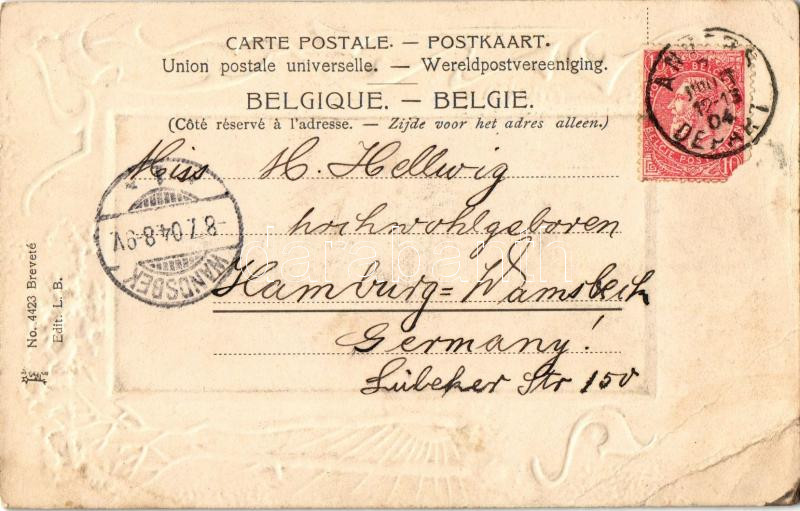 CARTE POSTALE. — POSTKAART.
Union postale universelle. — Wereldpostvereeniging.
BELGIQUE. — BELGIE.
(Côté réservé à l'adresse. — Zijde voor het adres alleen.)
Miss H. Hellwig
hochwohlgeboren
Hamburg=Wamsbeck
Germany!
Lübeker Str 150
WANDSBEK
8.7.04.8-9V.
DEPART
04
10
No. 4423 Breveté
Edit. L. B.
darabanth